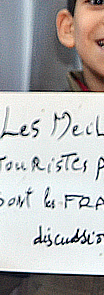 Les Meil
touristes p
sont les FRA
discussio